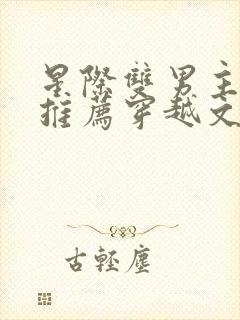 星際雙男主
推薦穿越文
古輕塵